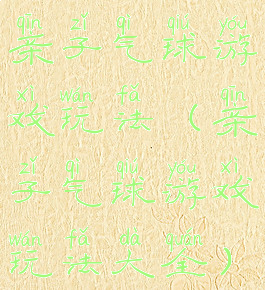 qīn zǐ qì qiú yóu
亲子气球游
xì wán fǎ qīn
戏玩法（亲
zǐ qì qiú yóu xì
子气球游戏
wán fǎ dà quán
玩法大全）